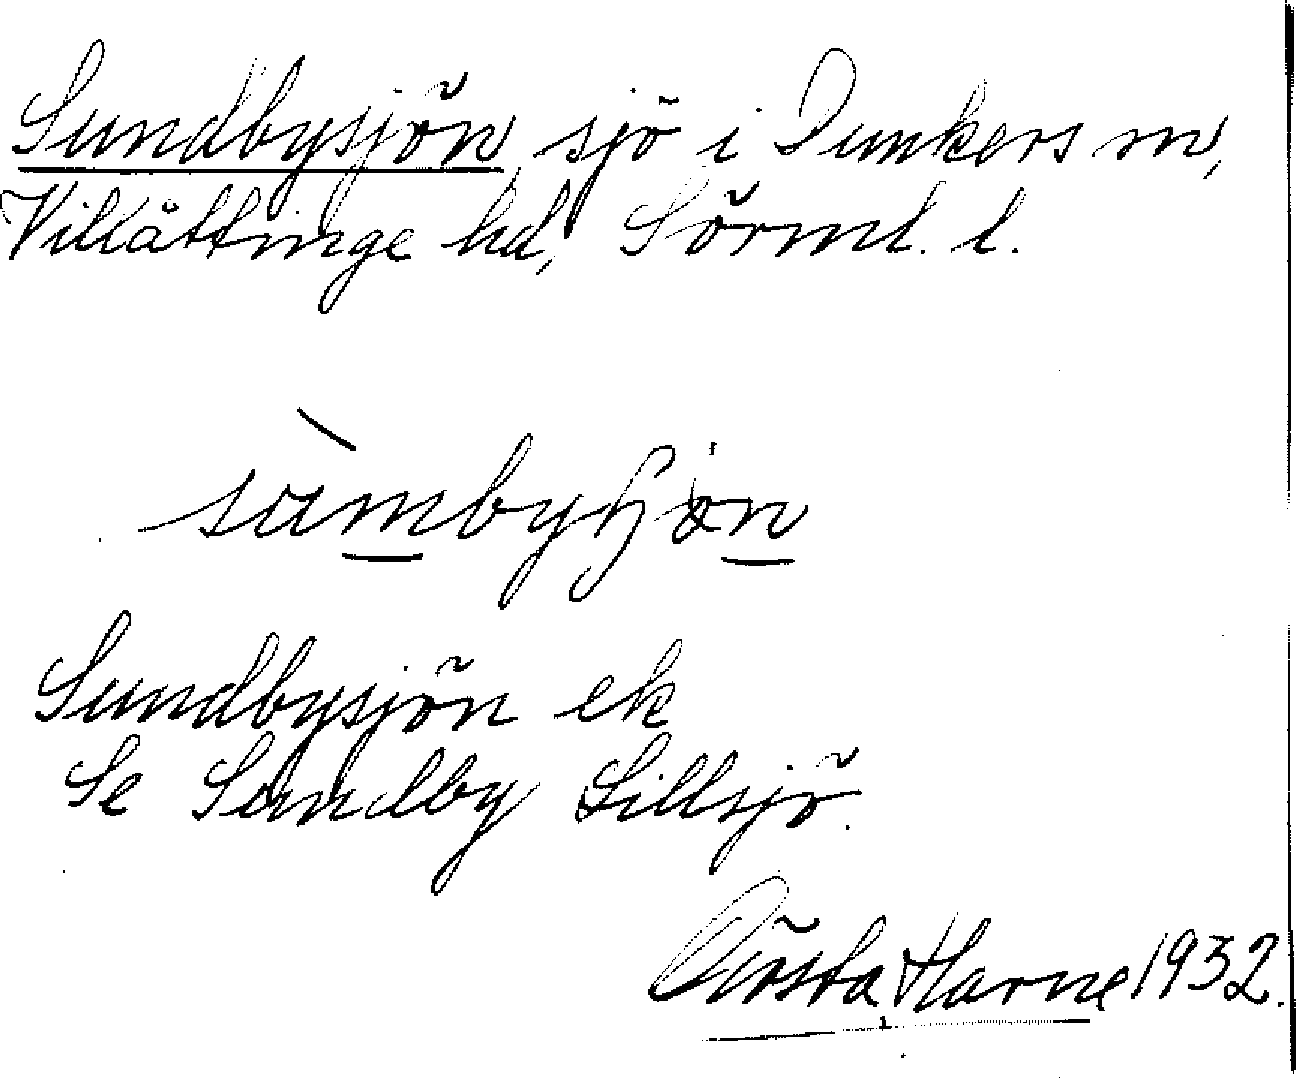 Sundbysjön, sjö i Dunkers sn,
Villåttinge hd, Sörml. l.
Sundbysjön ek
Se Sundby Lillsjö.
Gösta Harne 1932.